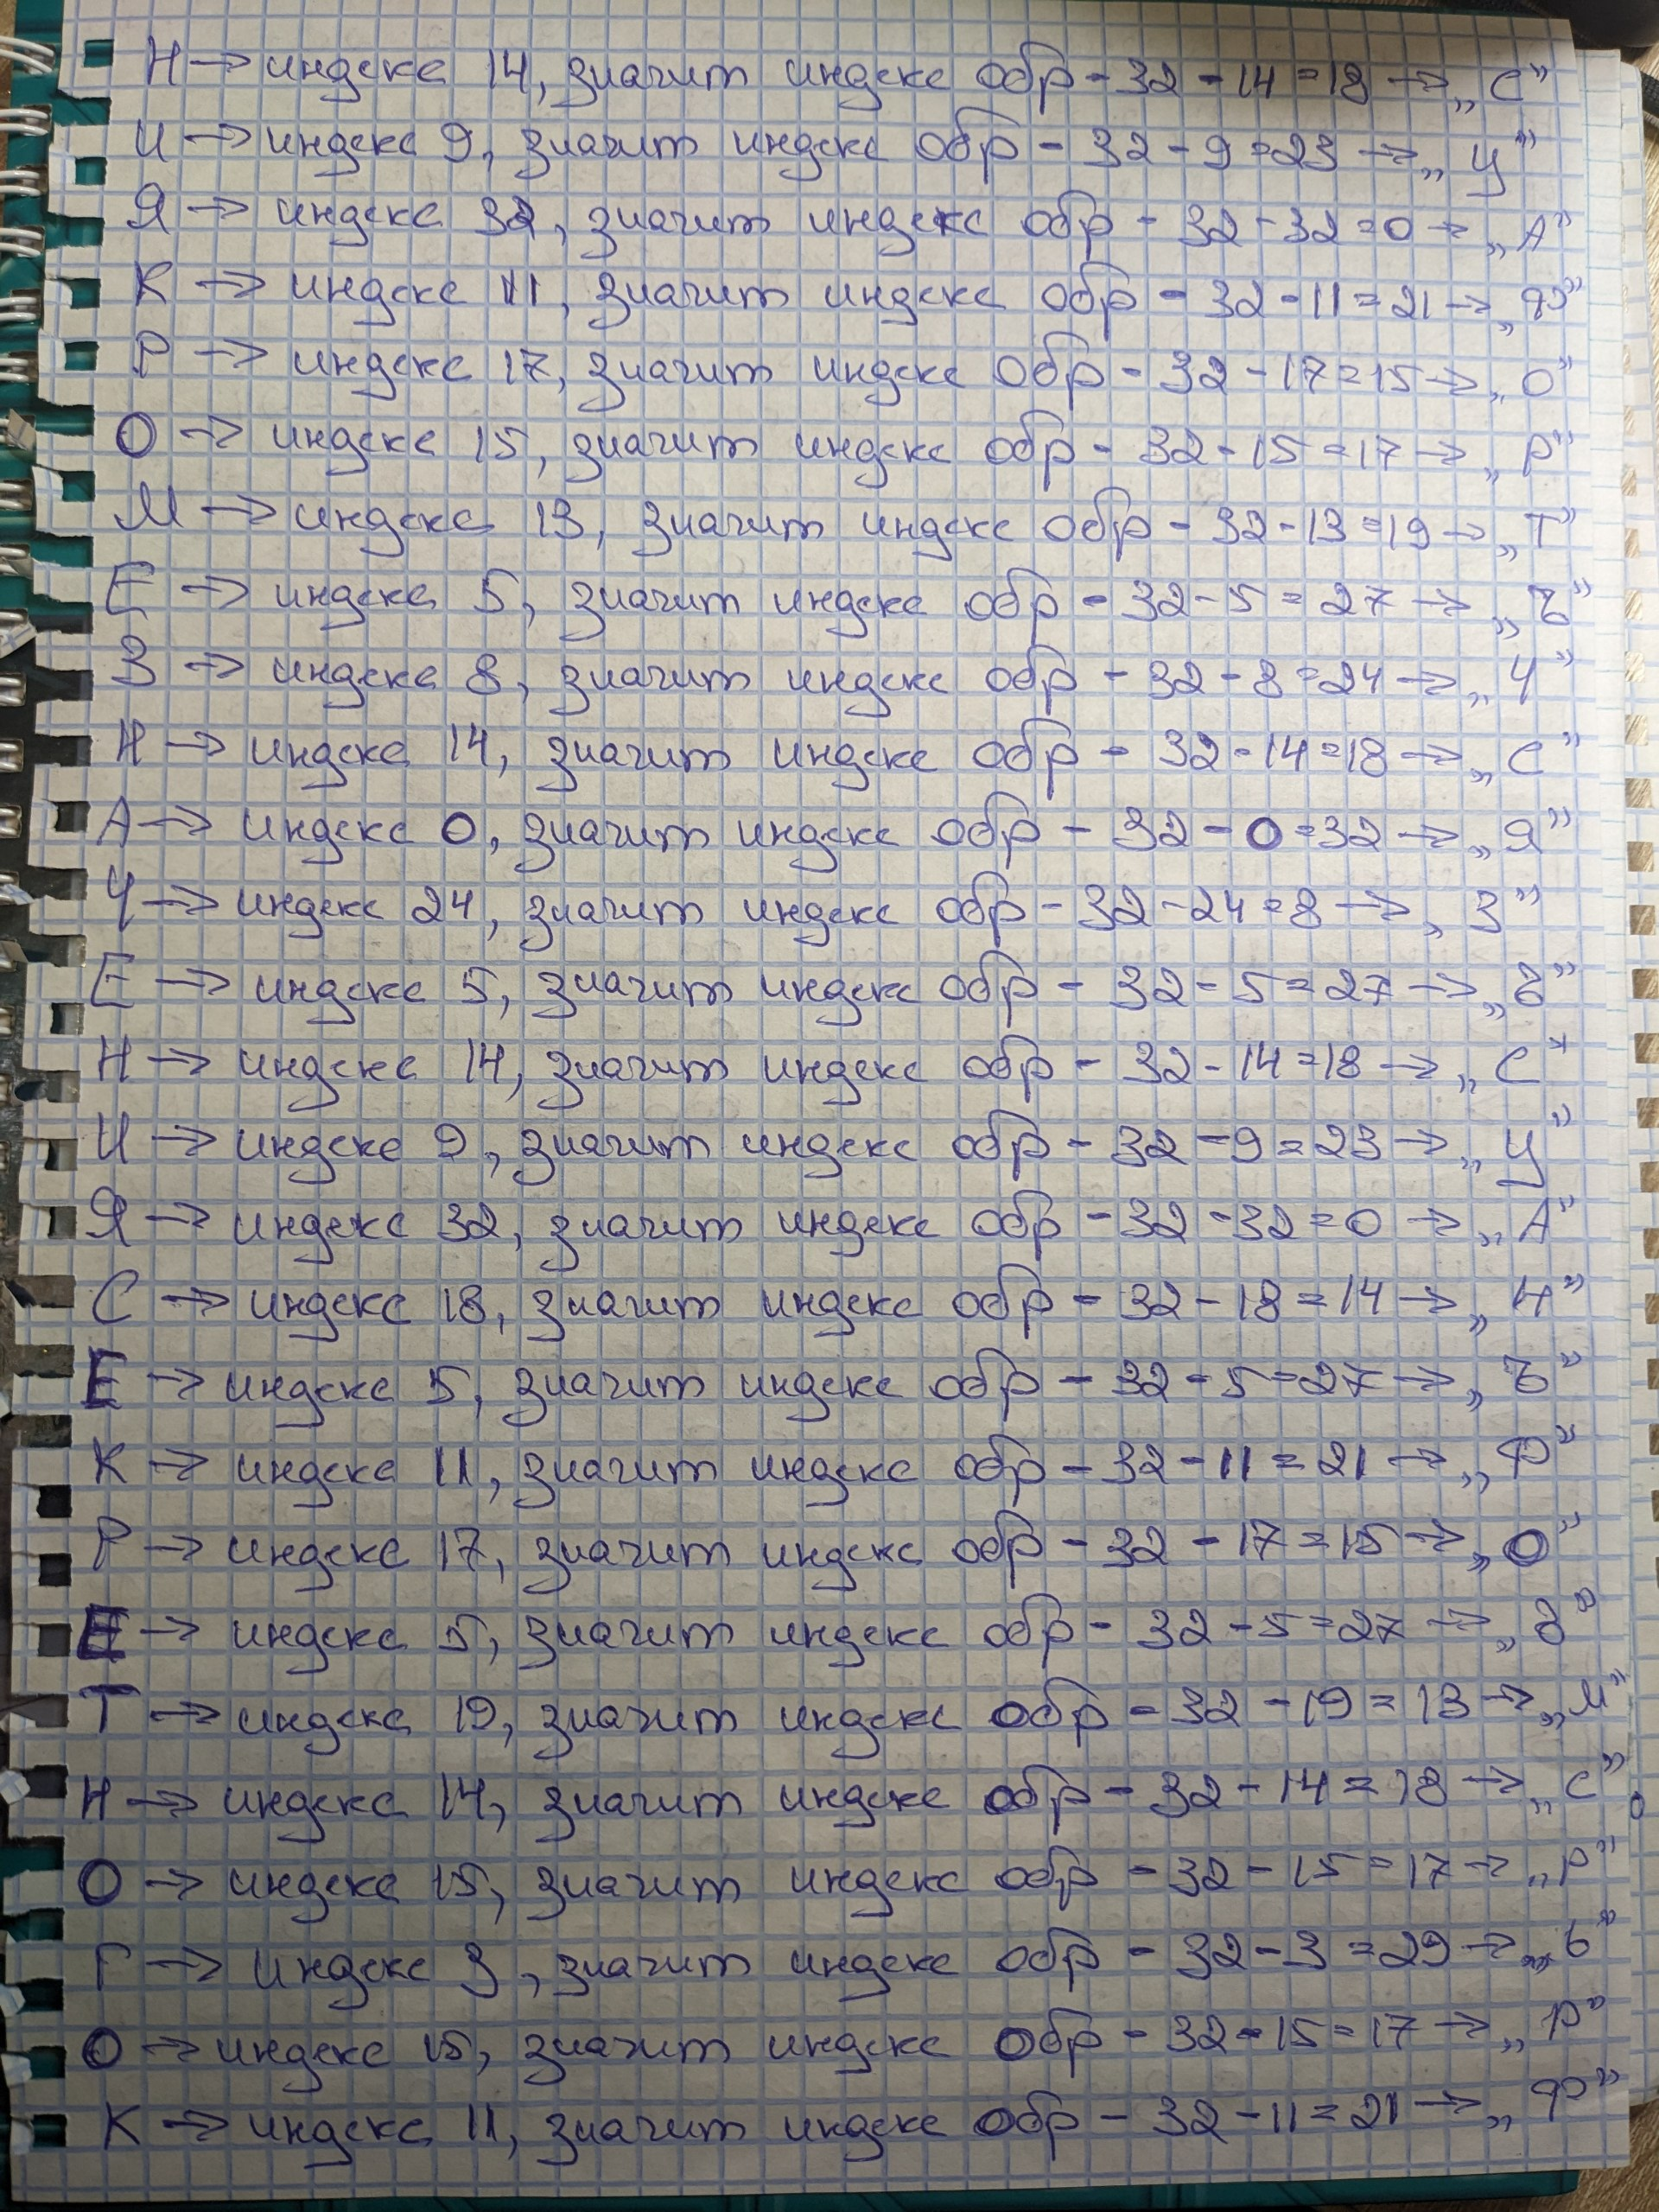 Н → индекс 14, значит индекс обр - 32 - 14 = 18 → „С”
И → индекс 9, значит индекс обр - 32 - 9 = 23 → „Ц”
Я → индекс 32, значит индекс обр - 32 - 32 = 0 → „А”
К → индекс 11, значит индекс обр - 32 - 11 = 21 → „Ф”
Р → индекс 17, значит индекс обр - 32 - 17 = 15 → „О”
О → индекс 15, значит индекс обр - 32 - 15 = 17 → „Р”
М → индекс 13, значит индекс обр - 32 - 13 = 19 → „Т”
Е → индекс 5, значит индекс обр - 32 - 5 = 27 → „Ъ”
З → индекс 8, значит индекс обр - 32 - 8 = 24 → „Ч”
Н → индекс 14, значит индекс обр - 32 - 14 = 18 → „С”
А → индекс 0, значит индекс обр - 32 - 0 = 32 → „Я”
Ч → индекс 24, значит индекс обр - 32 - 24 = 8 → „З”
Е → индекс 5, значит индекс обр - 32 - 5 = 27 → „Ъ”
Н → индекс 14, значит индекс обр - 32 - 14 = 18 → „С”
И → индекс 9, значит индекс обр - 32 - 9 = 23 → „Ц”
Я → индекс 32, значит индекс обр - 32 - 32 = 0 → „А”
С → индекс 18, значит индекс обр - 32 - 18 = 14 → „Н”
Е → индекс 5, значит индекс обр - 32 - 5 = 27 → „Ъ”
К → индекс 11, значит индекс обр - 32 - 11 = 21 → „Ф”
Р → индекс 17, значит индекс обр - 32 - 17 = 15 → „О”
Е → индекс 5, значит индекс обр - 32 - 5 = 27 → „Ъ”
Т → индекс 19, значит индекс обр - 32 - 19 = 13 → „М”
Н → индекс 14, значит индекс обр - 32 - 14 = 18 → „С”
О → индекс 15, значит индекс обр - 32 - 15 = 17 → „Р”
Г → индекс 3, значит индекс обр - 32 - 3 = 29 → „Ь”
О → индекс 15, значит индекс обр - 32 - 15 = 17 → „Р”
К → индекс 11, значит индекс обр - 32 - 11 = 21 → „Ф”